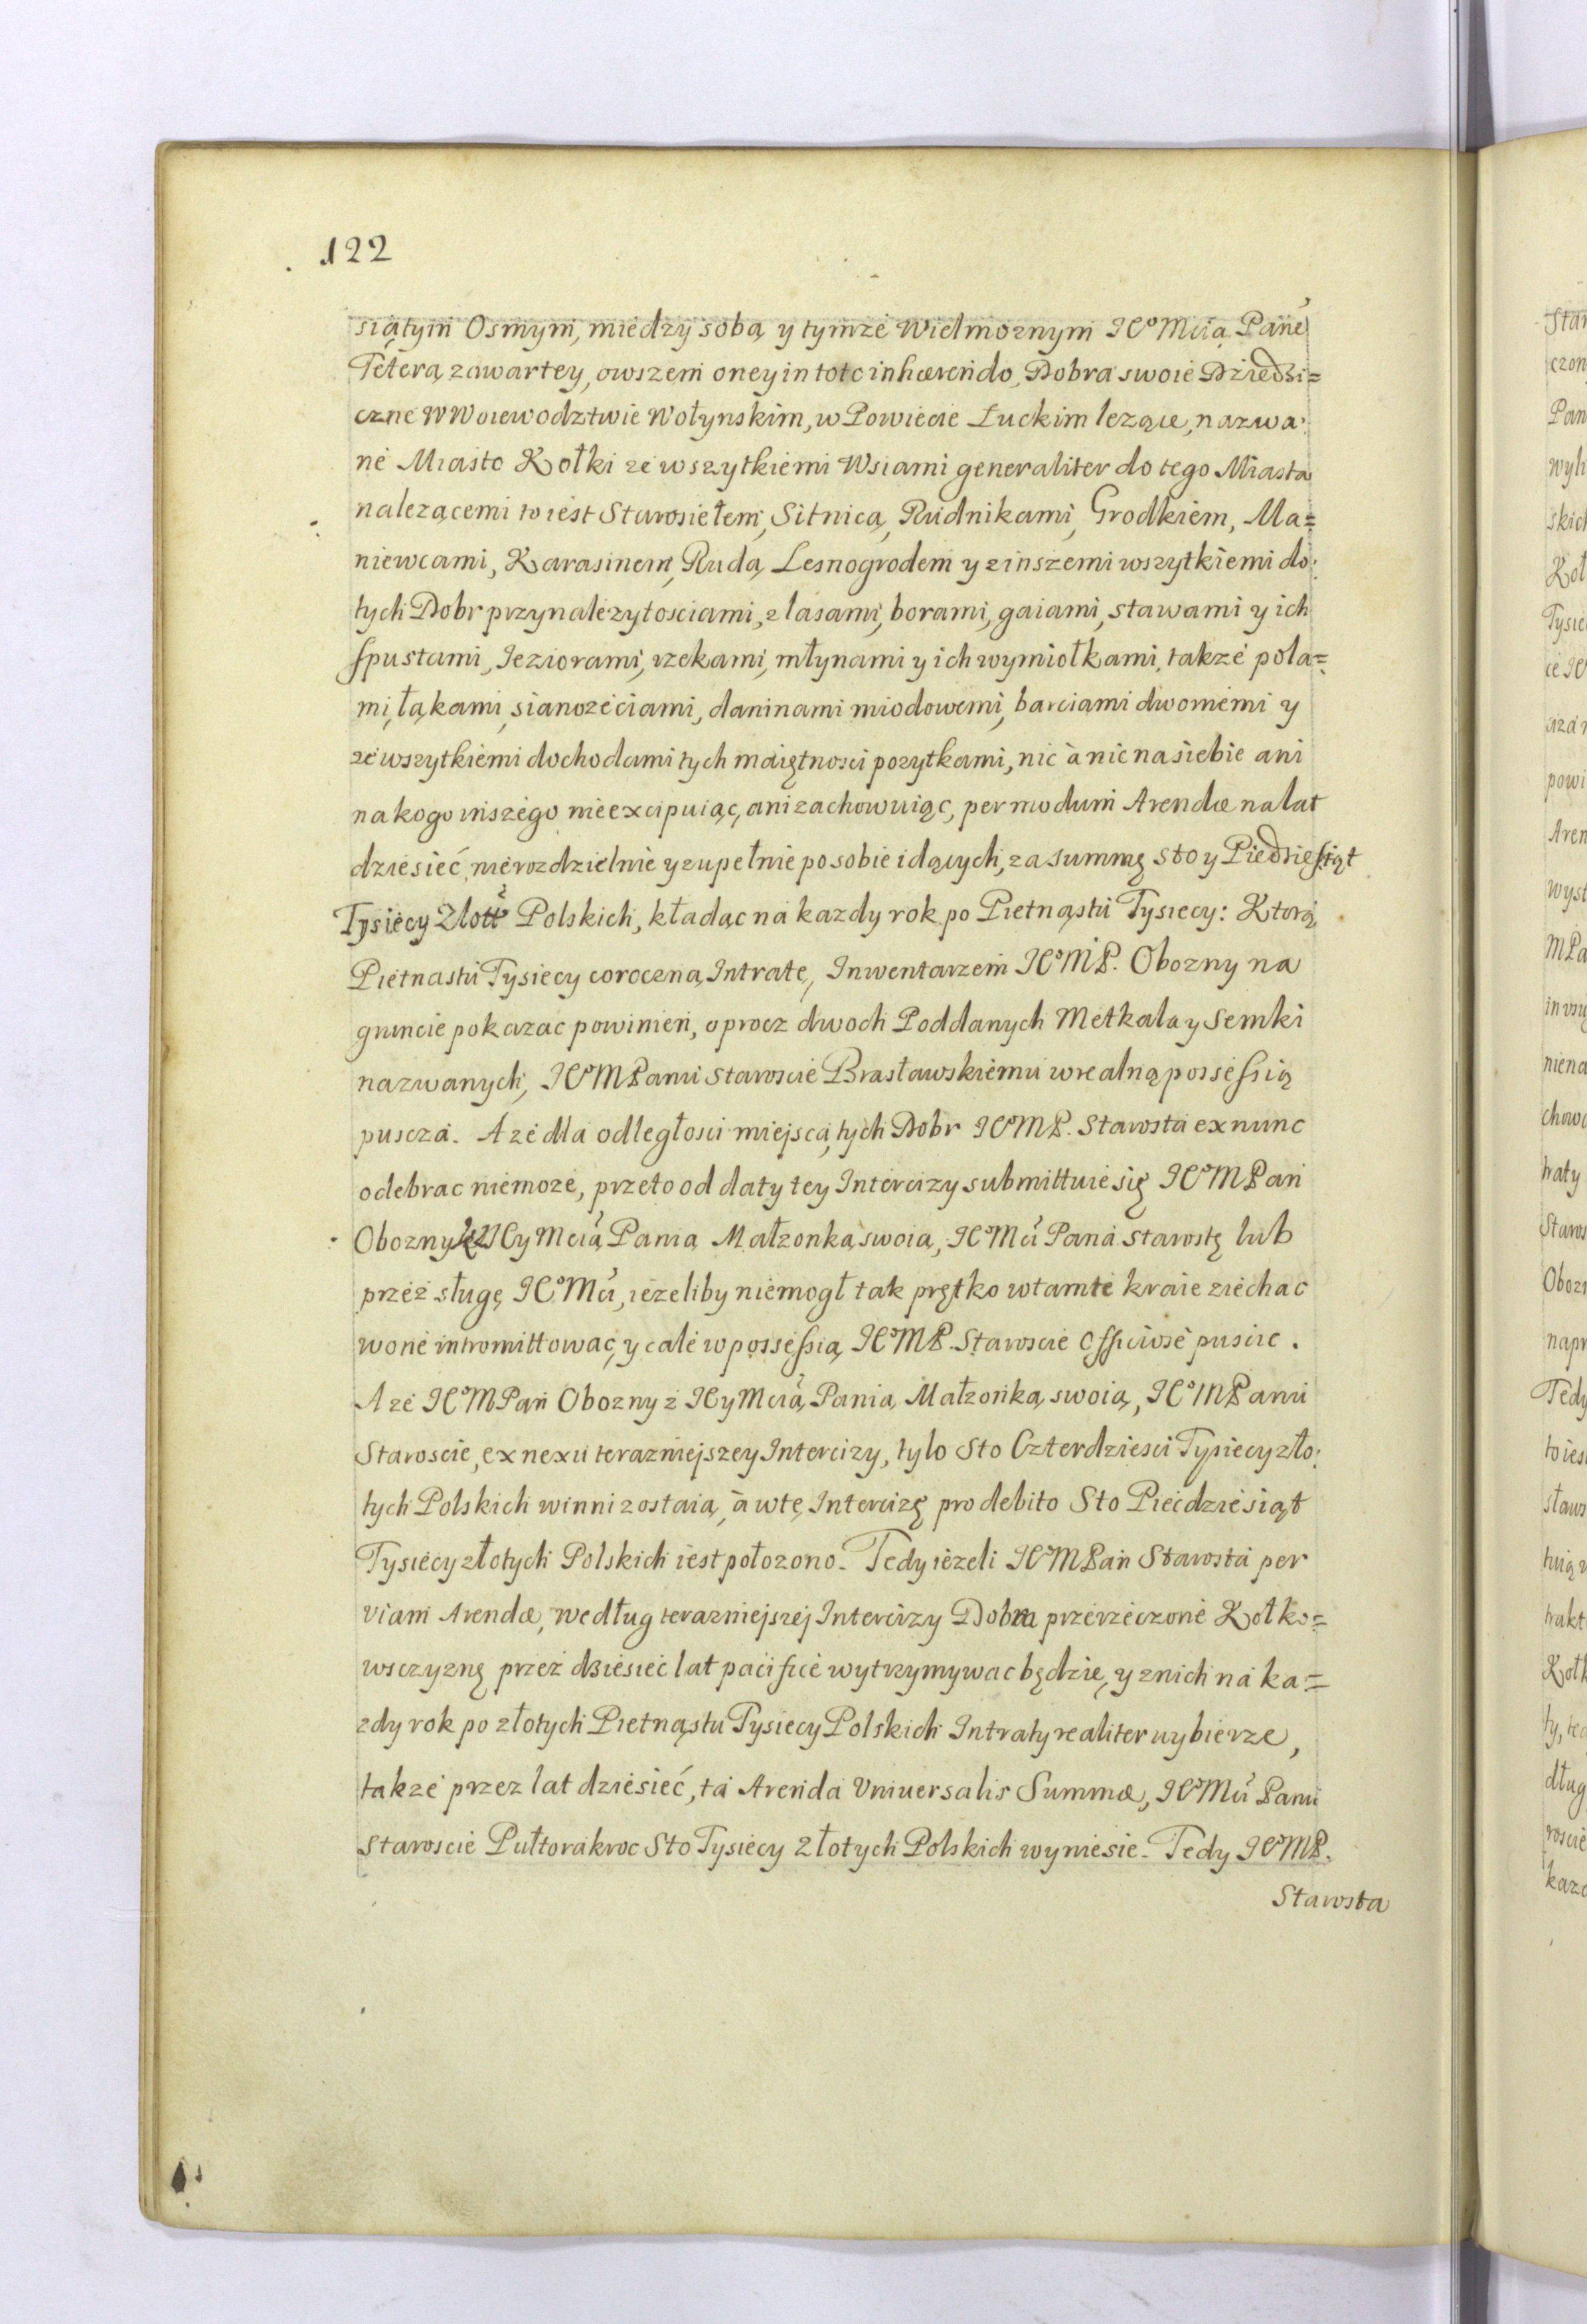 122
siątym Osmym, między sobą y tymze Wielmoznym JCᵒMcią Pane
Teterą zawartey, owszem oney in toto inhærendo, Dobra swoie Dziedzi=
czne w Woiewodztwie Wołynskim, w Powiecie Łuckim lezące, nazwa:
ne Miasto Kołki ze wszytkiemi Wsiami generaliter do tego Miasta
nalezącemi to iest Starosiełem, Sitnicą, Rudnikami, Grodkiem, Ma=
niewcami, Karasinem, Rudą, Lesnogrodem y z inszemi wszytkiemi do:
tych Dobr przynalezytosciami, z lasami, borami, gaiami, stawami y ich
spustami, Jeziorami, rzekami, młynami y ich wymiołkami, takze pola=
mi, łąkami, sianozęciami, daninami miodowemi, barciami dwornemi y
ze wszytkiemi dochodami tych maiętnosci pozytkami, nic à nic na siebie ani
na kogo inszego nie excipuiąc, ani zachowuiąc, per modum Arendæ na lat
dziesieć, nierozdzielnie y zupełnie po sobie idących, za summę sto y Piedziesiąt
Tysiecy Złott Polskich, kładąc na kazdy rok po Pietnąstu Tysiecy: Ktorą
Pietnastu Tysiecy coroczną Intratę, Inwentarzem JCᵒMP. Obozny na
gruncie pokazac powinien, oprocz dwoch Poddanych Metkala y Semki
nazwanych, JCᵒMPanu Staroscie Brasławskiemu w realną possessią
puscza. A ze dla odległosci miejscą, tych Dobr JCᵒMP. Starosta ex nunc
odebrac niemoze, przeto od daty tey Intercizy submittuie się JCᵒMPan
Obozny z JCyMcią Panią Małzonką swoią, JCᵒMci Pana Starostę lub
przez sługę JCᵒMci, iezeliby niemogł tak prętko w tamte kraie ziechac
w one intromittowac, y cale w possessią JCᵒMP. Staroscie Officiose puscic.
A ze JCᵒMPan Obozny z JCyMcią Panią Małzonką swoią, JCᵒMPanu
Staroscie, ex nexu terazniejszey Intercizy, tylo Sto Czterdziesci Tysiecy zło:
tych Polskich winni zostaią, à w tę Intercizę pro debito Sto Piecdziesiąt
Tysiecy złotych Polskich iest połozono. Tedy iezeli JCᵒMPan Starosta per
viam Arendæ, według terazniejszej Intercizy Dobra przerzeczone Kołko=
wsczyznę przez dziesiec lat pacifice wytrzymywac będzie, y z nich na ka=
zdy rok po złotych Pietnąstu Tysiecy Polskich Intraty realiter wybierze,
takze przez lat dziesieć, ta Arenda Vniuersalis Summæ, JCᵒMci Panu
Staroscie Pułtorakroc Sto Tysiecy Złotych Polskich wyniesie. Tedy JCᵒMP.
Starosta